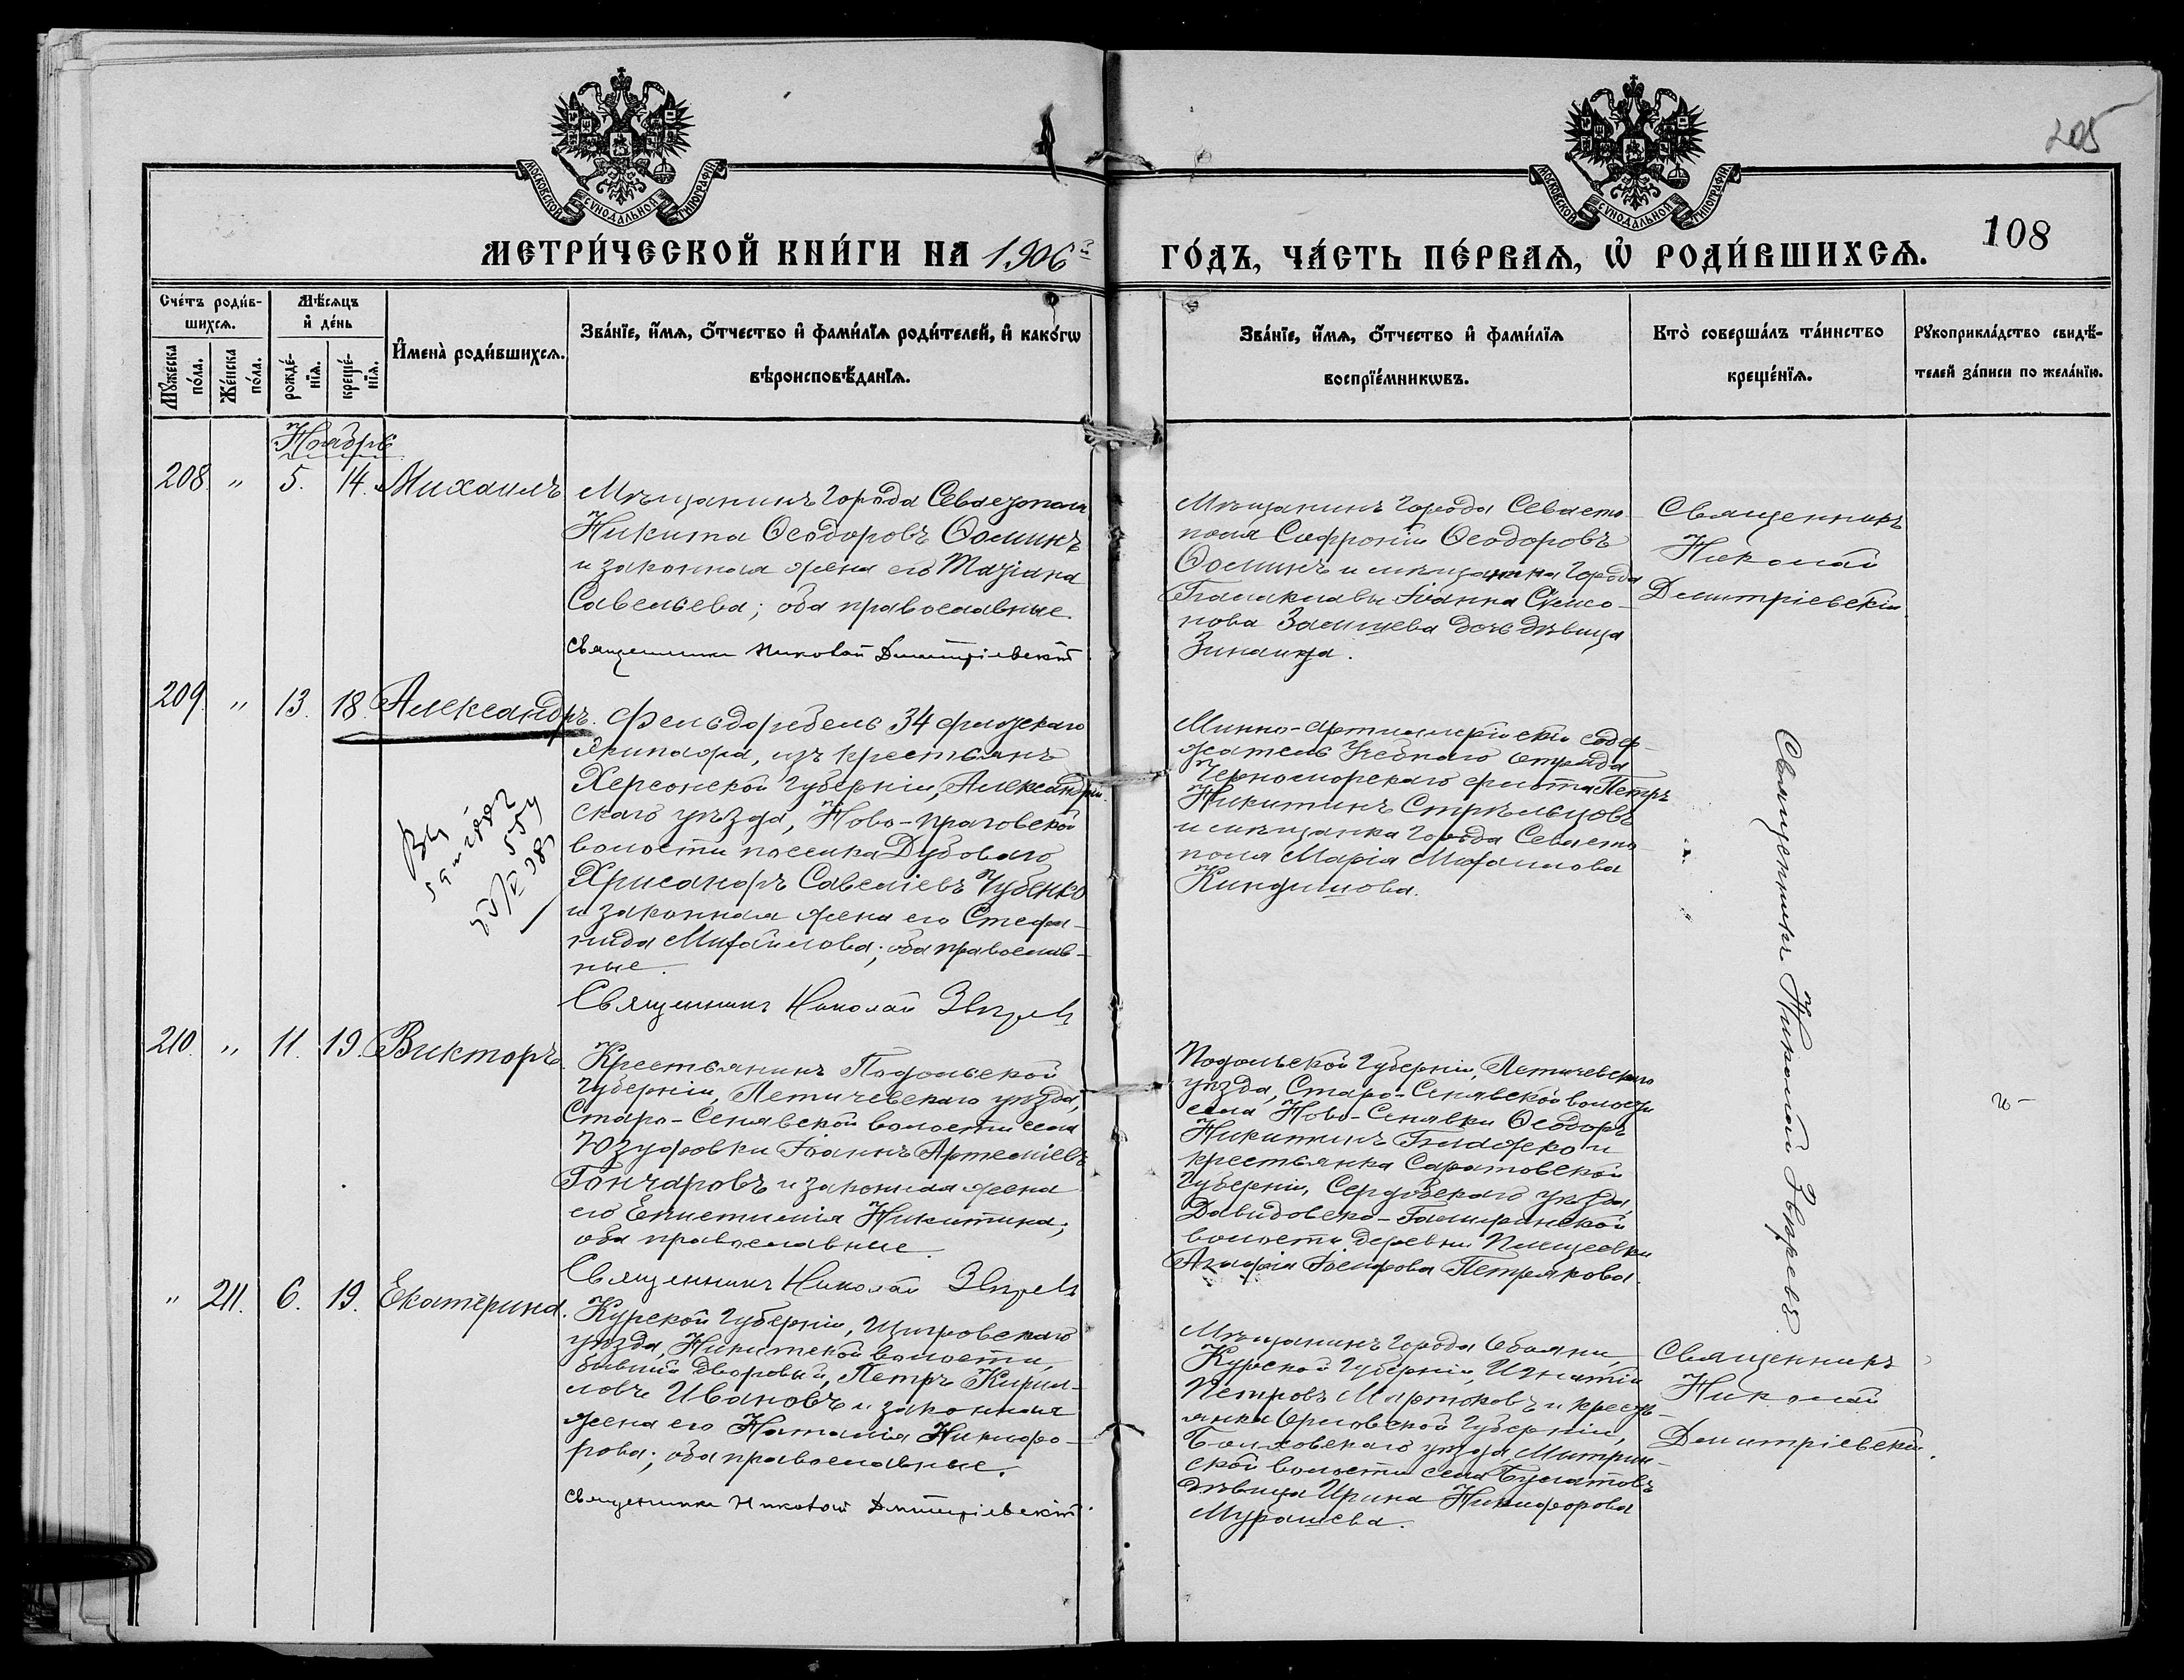 205
МОСКОВСКОЙ СѴНОДАЛЬНОЙ ТИПОГРАФІИ
МОСКОВСКОЙ СѴНОДАЛЬНОЙ ТИПОГРАФІИ
108
МЕТРИ́ЧЕСКОЙ КНИ́ГИ НА 1906 г ГО́ДЪ, ЧА́СТЬ ПЕ́РВАѦ, Ѡ РОДИ́ВШИХСѦ.
Сче́тъ роди́в-
шихсѧ.
Мѣ́сѧцъ
и҆ де́нь
Мꙋ́жеска
по́ла.
Же́нска
по́ла.
рожде́-
нїѧ.
креще́-
нїѧ.
И҆мена̀ роди́вшихсѧ.
Зва́нїе, и҆́мѧ, ѻ҆́тчество и҆ фами́лїѧ роди́телей, и҆ како́гѡ
вѣроисповѣ́данїѧ.
Зва́нїе, и҆́мѧ, ѻ҆́тчество и҆ фами́лїѧ
воспрїе́мникѡвъ.
Кто̀ соверша́лъ та́инство
креще́нїѧ.
Рꙋкоприкла́дство свидѣ́-
телей за́писи по жела́нїю.
Ноябрь
208. " 5. 14. Михаилъ
Мѣщанинъ города Севастополя
Никита Ѳеодоровъ Ѳоминъ
и законная жена его Татіана
Савельева; оба православные.
Священникъ Николай Димитріевскій.
Мѣщанинъ города Севасто-
поля Софроній Ѳеодоровъ
Ѳоминъ и мѣщанина города
Балаклавы Іоанна
дочь дѣвица
Зинаида.
Священникъ
Николай
Димитріевскій
209. " 13. 18. Александръ.
Фельдфебель 34 флотскаго
экипажа, изъ крестьянъ
Херсонской губерніи, Александрій-
скаго уѣзда, Ново-праговской
волости поселка Дубоваго
Хрисанфъ Савеліевъ Чубенко
и законная жена его Стефа-
нида Михайлова; оба православ-
ные.
Священникъ Николай Звѣревъ
Минно-артиллерійскій содер-
жатель Учебнаго отряда
Черноморскаго флота Петръ
Никитинъ Стрѣльцовъ
и мѣщанка города Севасто-
поля Марія Михаилова
Киндишова.
Священникъ Николай Звѣревъ.
210. " 11. 19. Викторъ.
Крестьянинъ Подольской
губерніи, Летичевскаго уѣзда,
Старо-Сенявской волости села
Юзуфовки Іоаннъ Артеміевъ
Гончаровъ и законная жена
его Епистимія Никитина;
оба православные.
Священникъ Николай Звѣревъ
Подольской губерніи, Летичевскаго
уѣзда, Старо-Сенявской волости
села Ново-Сенявки Ѳеодоръ
Никитинъ и
крестьянка Саратовской
губерніи, Сердобскаго уѣзда,
волости деревни
Агафія Іосифова Петрякова.
" 211. 6. 19. Екатерина.
Курской губерніи, Щигровскаго
уѣзда, Никитской волости,
бывшій дворовый, Петръ Кирил-
ловъ Ивановъ и законная
жена его Наталія Никифо-
рова; оба православные.
Священникъ Николай Димитріевскій.
Мѣщанинъ города Обояни,
Курской губерніи, Игнатій
Петровъ и кресть-
янка Орловской губерніи,
Болховскаго уѣзда,
ской волости села
дѣвица Ирина Никифорова
Мурашева.
Священникъ
Николай
Димитріевскій.